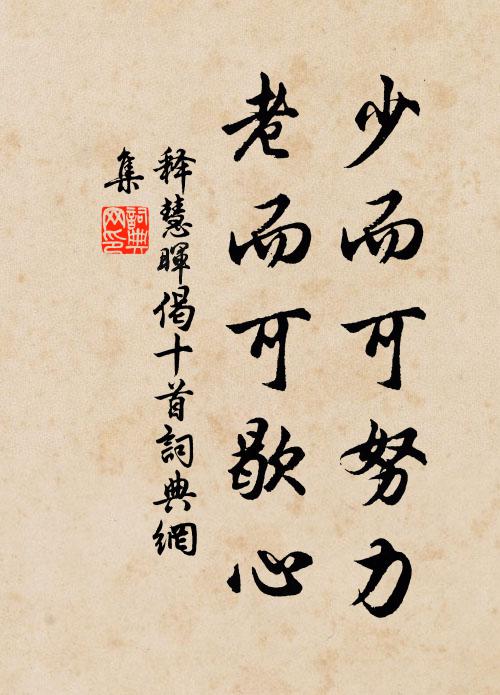 少而可努力
老而可歇心
释慧暉偈十首詞典網
集
詞典網印